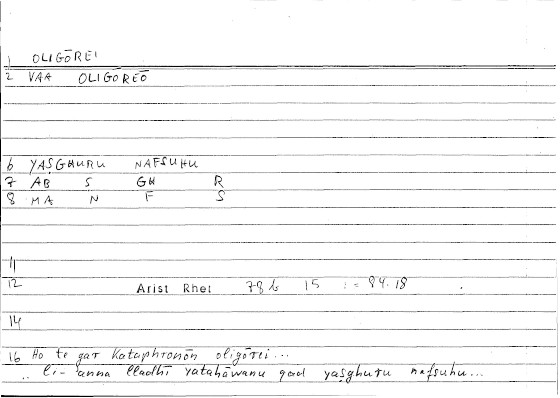 1 OLIGŌREI
2 VAA OLIGOREŌ
6 YAṢGHURU NAFSUHU
7 AB S GH R
8 MA N F S
11
12 Arist Rhet 78b 15 := 84.18
14
16 Ho te gar Kataphronōn oligōrei...
.. li-anna lladhī yatahāwanu qad yaṣghuru nafsuhu...